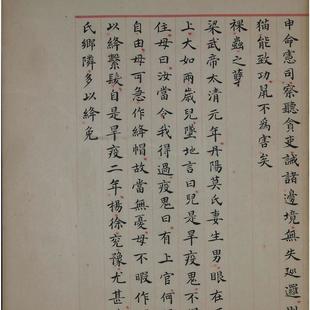 申命憲司察聽貪吏誡諸邊境無失巡邏則
猫能致功鼠不為害矣
裸蟲之孽
梁武帝太清元年丹陽莫氏妻生男眼在
上大如兩歲兒墜地言曰兒是旱疫鬼不
住母曰汝當令我得過疫鬼曰有上官何
自由母可急作絳帽故當無憂母不暇作
以絳繫髮自是旱疫二年楊徐兗豫尤甚
氏鄉隣多以絳免